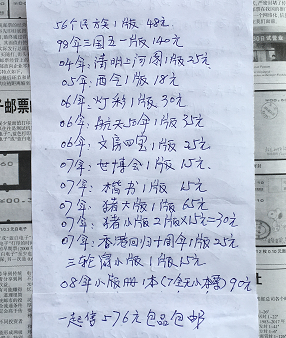 56个民族1版 48元
98年三国五一版140元
04年:清明上河图1版25元
05年:西会1版18元
06年:灯彩1版30元
06年:航天50年1版35元
06年:文房四宝1版25元
07年:世博会1版15元
07年:楷书1版15元
07年:猪大版1版65元
07年:猪小版2版X15元=30元
07年:香港回归十周年1版25元
三轮鼠小版1版15元
08年小版册1本(7全无小本票)90元
一起售576元包品包邮